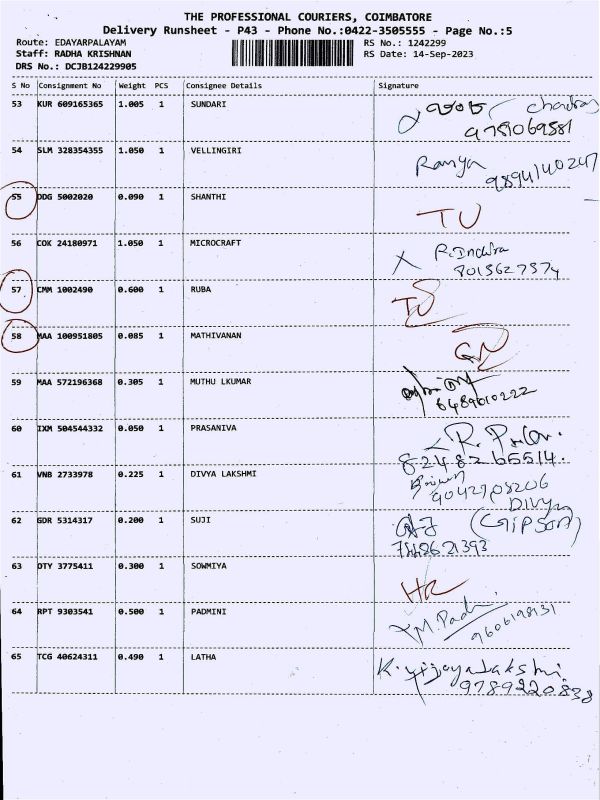 THE PROFESSIONAL COURIERS, COIMBATORE
Delivery Runsheet - P43 - Phone No.:0422-3505555 - Page No.:5
Route: EDAYARPALAYAM RS No.: 1242299
Staff: RADHA KRISHNAN RS Date: 14-Sep-2023
DRS No.: DCJB124229905
S No Consignment No Weight PCS Consignee Details Signature
53 KUR 609165365 1.005 1 SUNDARI
9751069581
54 SLM 328354355 1.050 1 VELLINGIRI Ramya
9894140247
55 DDG 5002020 0.090 1 SHANTHI TU
56 COK 24180971 1.050 1 MICROCRAFT R.Indhira
8015627574
57 CMM 1002490 0.600 1 RUBA
58 MAA 100951805 0.085 1 MATHIVANAN
59 MAA 572196368 0.305 1 MUTHU LKUMAR
6489010222
60 IXM 504544332 0.050 1 PRASANIVA
8248265514.
61 VNB 2733978 0.225 1 DIVYA LAKSHMI
9042708206
Divya
62 GDR 5314317 0.200 1 SUJI (GIPSON)
7448621393
63 OTY 3775411 0.300 1 SOWMIYA
64 RPT 9303541 0.500 1 PADMINI M.Padmi
9606198131
65 TCG 40624311 0.490 1 LATHA K.vijayalakshmi
9789220838